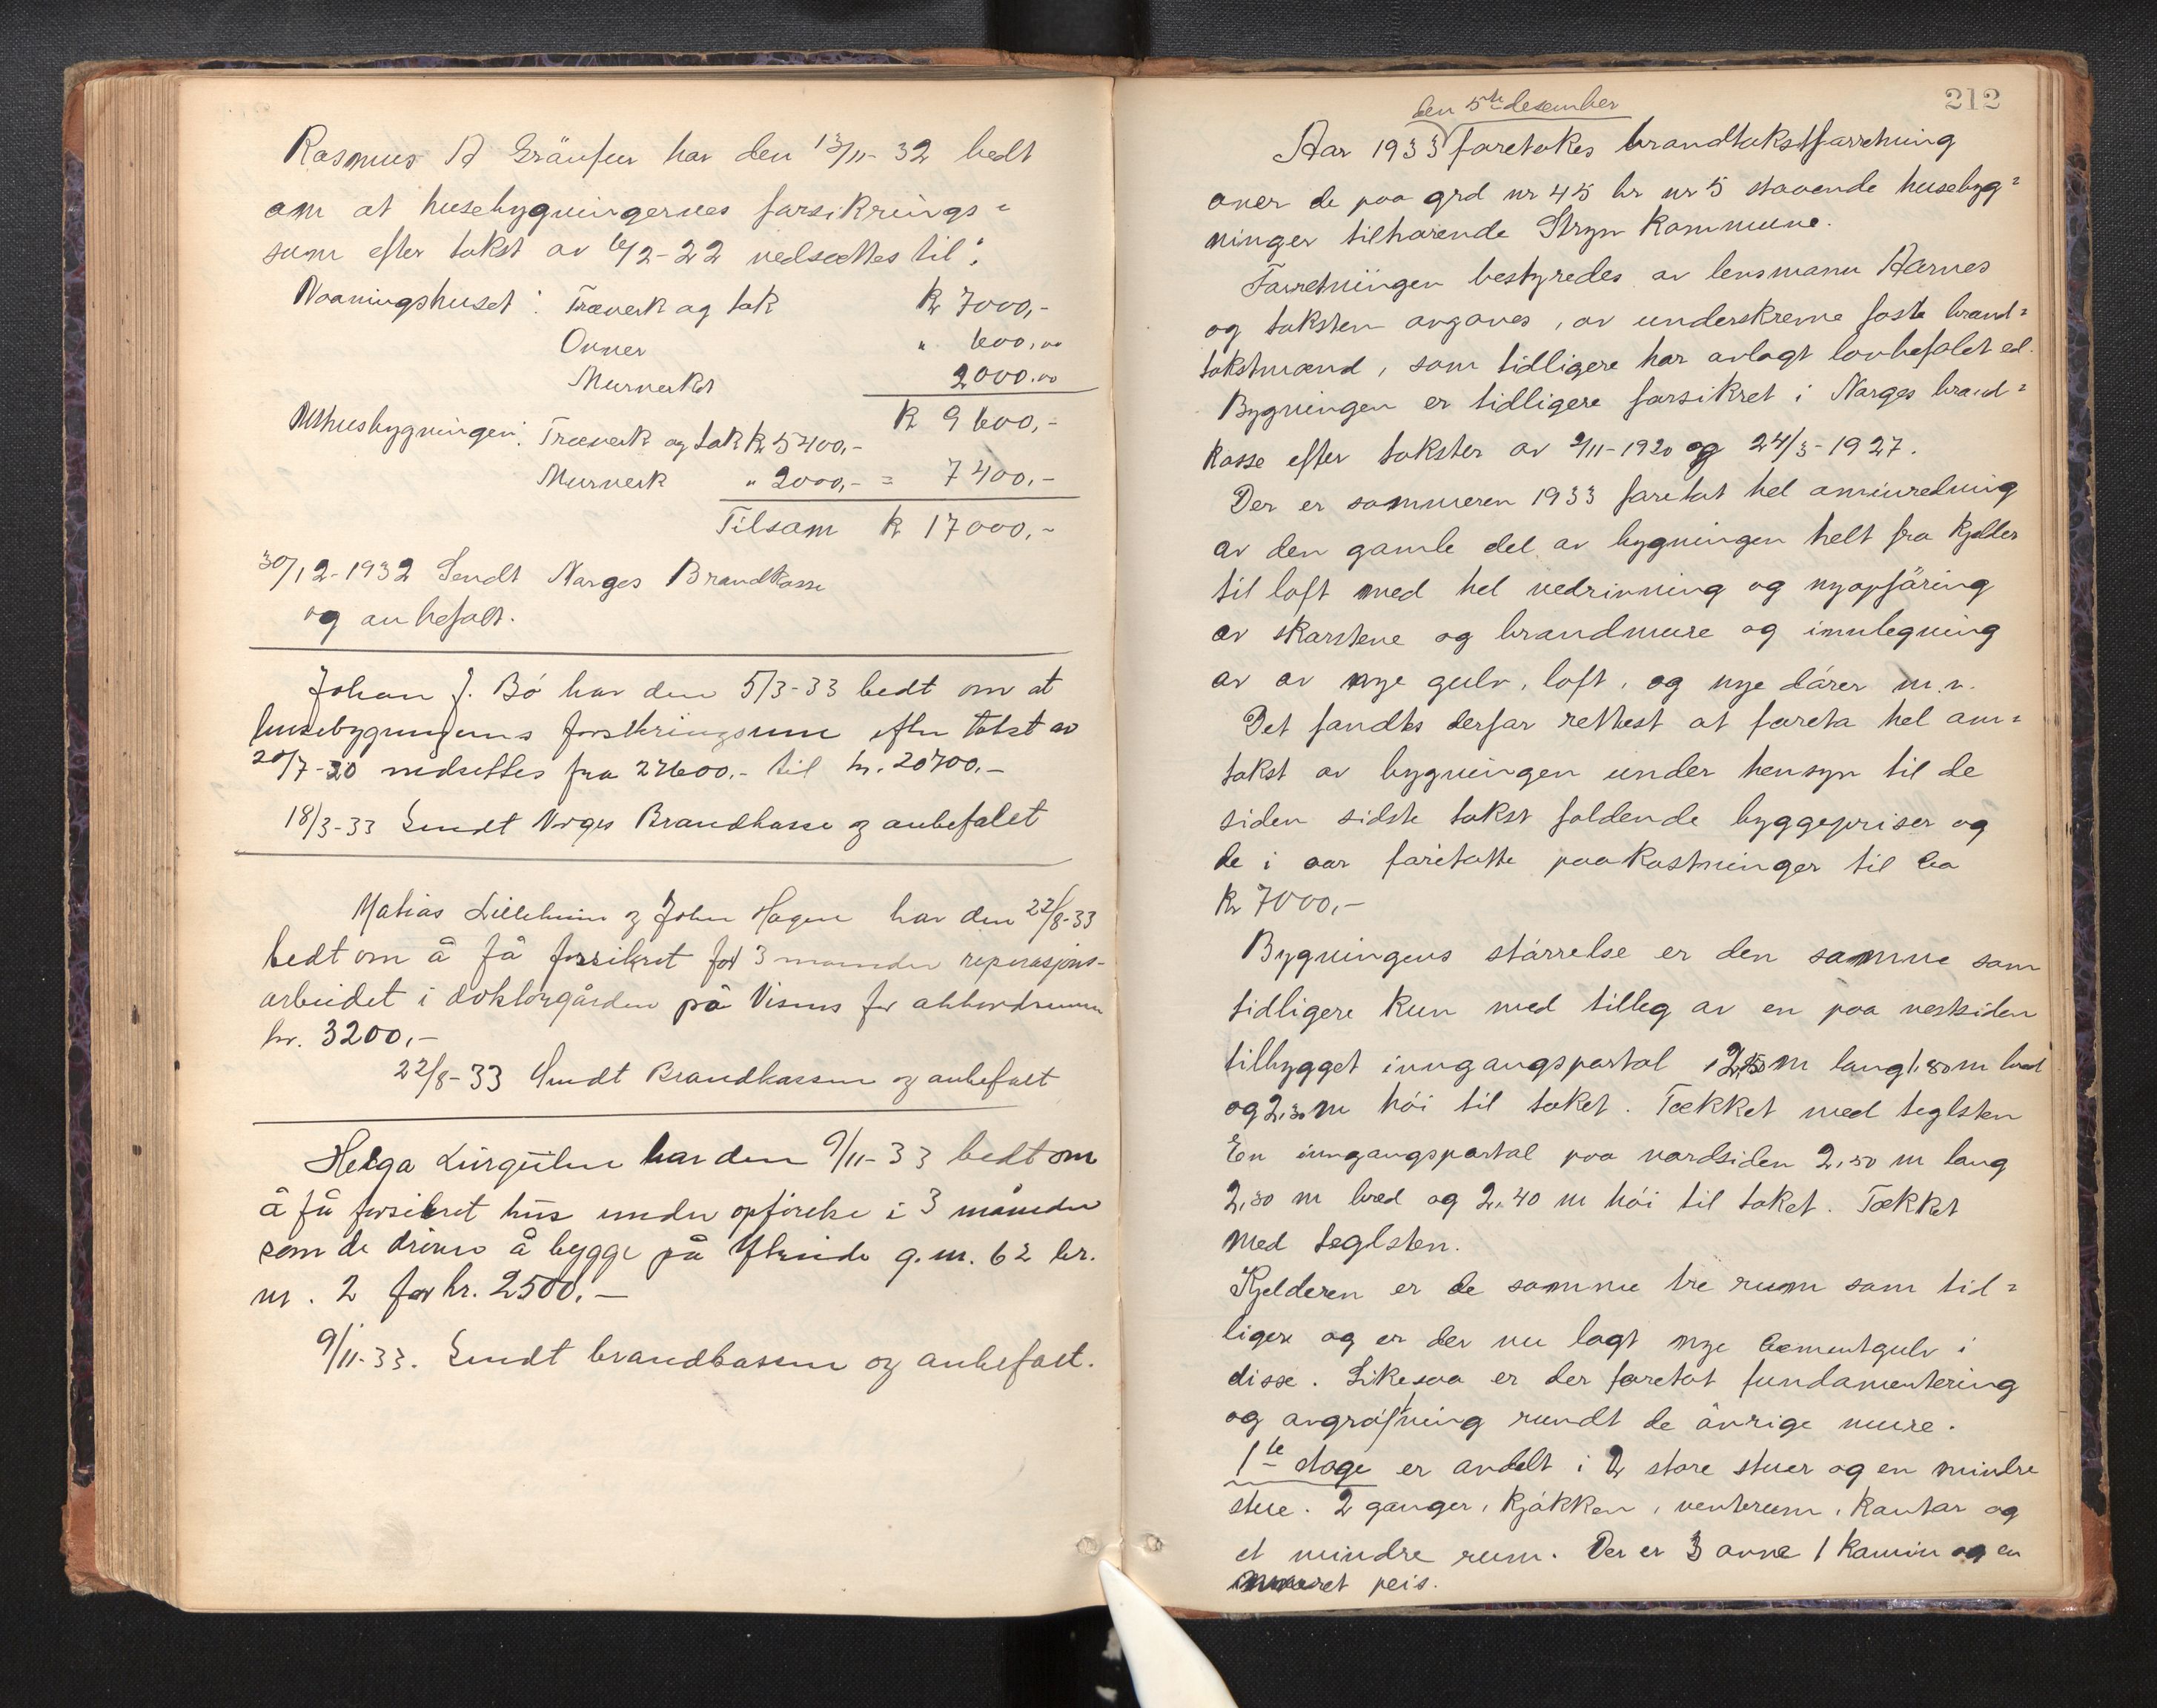 Rasmus A har den 13/11-32 bedt
om at husebygningernes forsikrings=
sum efter takst av 6/2-22 nedsættes til:
Vaaningshuset: Træverk og tak kr 7000,-
Ovner " 600,00
Murverket 2000.00
kr 9600,-
Uthusbygningen: Træverk og tak kr 5400,-
Murverk " 2000,- = 7400,-
Tilsam kr 17000,-
30/12-1932 Sendt Norges Brandkasse
og anbefalt.
Johan J. Bö har den 5/3-33 bedt om at
husebygningens forsikringssum efter takst av
20/7-20 nedsettes fra til kr. 20700,-
18/3-33 Sendt Norges Brandkasse og anbefalet
Matias Lilleheim og John Hagen har den 22/8-33
bedt om å få forsikret for 3 måneder reperasjons-
arbeidet i doktorgården på Visnes for akkordsum
kr. 3200,-
22/8-33 Sendt Brandkassen og anbefalt
Helga har den 9/11-33 bedt om
å få forsikret hus under opförelse i 3 måneder
som de driver å bygge på g.nr. 62 br.
nr. 2 for kr. 2500,-
9/11-33. Sendt brandkassen og anbefalt.
212
den 5te desember
Aar 1933 foretokes brandtakstforretning
over de paa grd nr 45 br nr 5 staaende husebyg=
ninger tilhørende Stryn Kommune.
Forretningen bestyredes av lensmann Aarnes
og taksten avgaves, av underskrevne faste brand=
takstmænd, som tidligere har avlagt lovbefalet ed.
Bygningen er tidligere forsikret i Norges brand=
kasse efter takster av 2/11-1920 og 24/3-1927.
Der er sommeren 1933 foretat hel ominredning
av den gamle del av bygningen helt fra kjelder
til loft med hel nedrivning og nyopföring
av skorstene og brandmure og innlegning
av av nye gulv, loft, og nye dörer m.v.
Det fandtes derfor rettest at foreta hel om=
takst av bygningen under hensyn til de
siden sidste takst faldende byggepriser og
de i aar foretatte paakostninger til ca
kr 7000,-
Bygningens störrelse er den samme som
tidligere kun med tilleg av en paa vestsiden
tilbygget inngangsportal m lang 1.80 m bred
og 2,30 m höi til taket. Tækket med teglsten
En inngangsportal paa nordsiden 2,50 m lang
2,30 m bred og 2,40 m höi til taket. Tækket
med teglsten.
Kjelderen er de samme tre rum som tid=
ligere og er der nu lagt nye cementgulv i
disse. Likesaa er der foretat fundamentering
og avgröftning rundt de övrige mure.
1te etage er avdelt i 2 store stuer og en mindre
stue. 2 ganger, kjökken, venterum, kontor og
et mindre rum. Der er 3 ovne 1 kamin og en
muret peis.